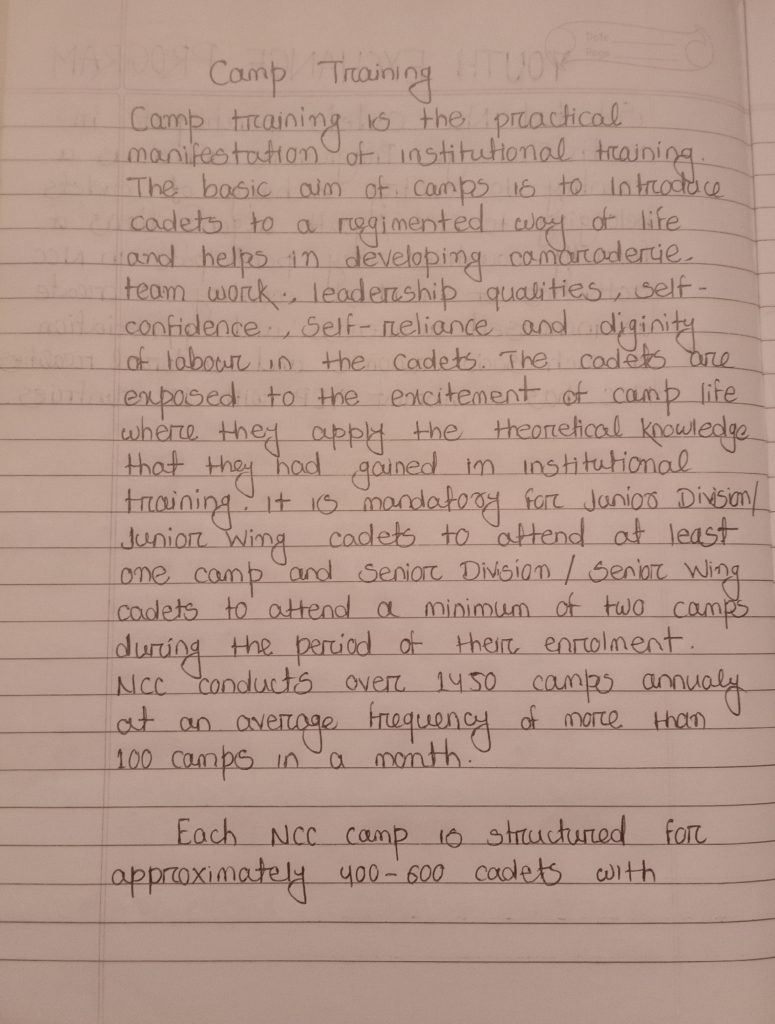 Camp Training
Camp training is the practical
manifestation of institutional training.
The basic aim of camps is to introduce
cadets to a regimented way of life
and helps in developing camaraderie.
team work., leadership qualities, self-
confidence., Self-reliance and diginity
of labour in the cadets. The cadets are
exposed to the excitement of camp life
where they apply the theoretical knowledge
that they had gained in institutional
training. it is mandatory for Junior Division/
Junior wing cadets to attend at least
one camp and Senior Division / Senior Wing
cadets to attend a minimum of two camps
during the period of their enrolment.
NCC conducts over 1450 camps annualy
at an average frequency of more than
100 camps in a month.
Each NCC camp is structured for
approximately 400-600 cadets with